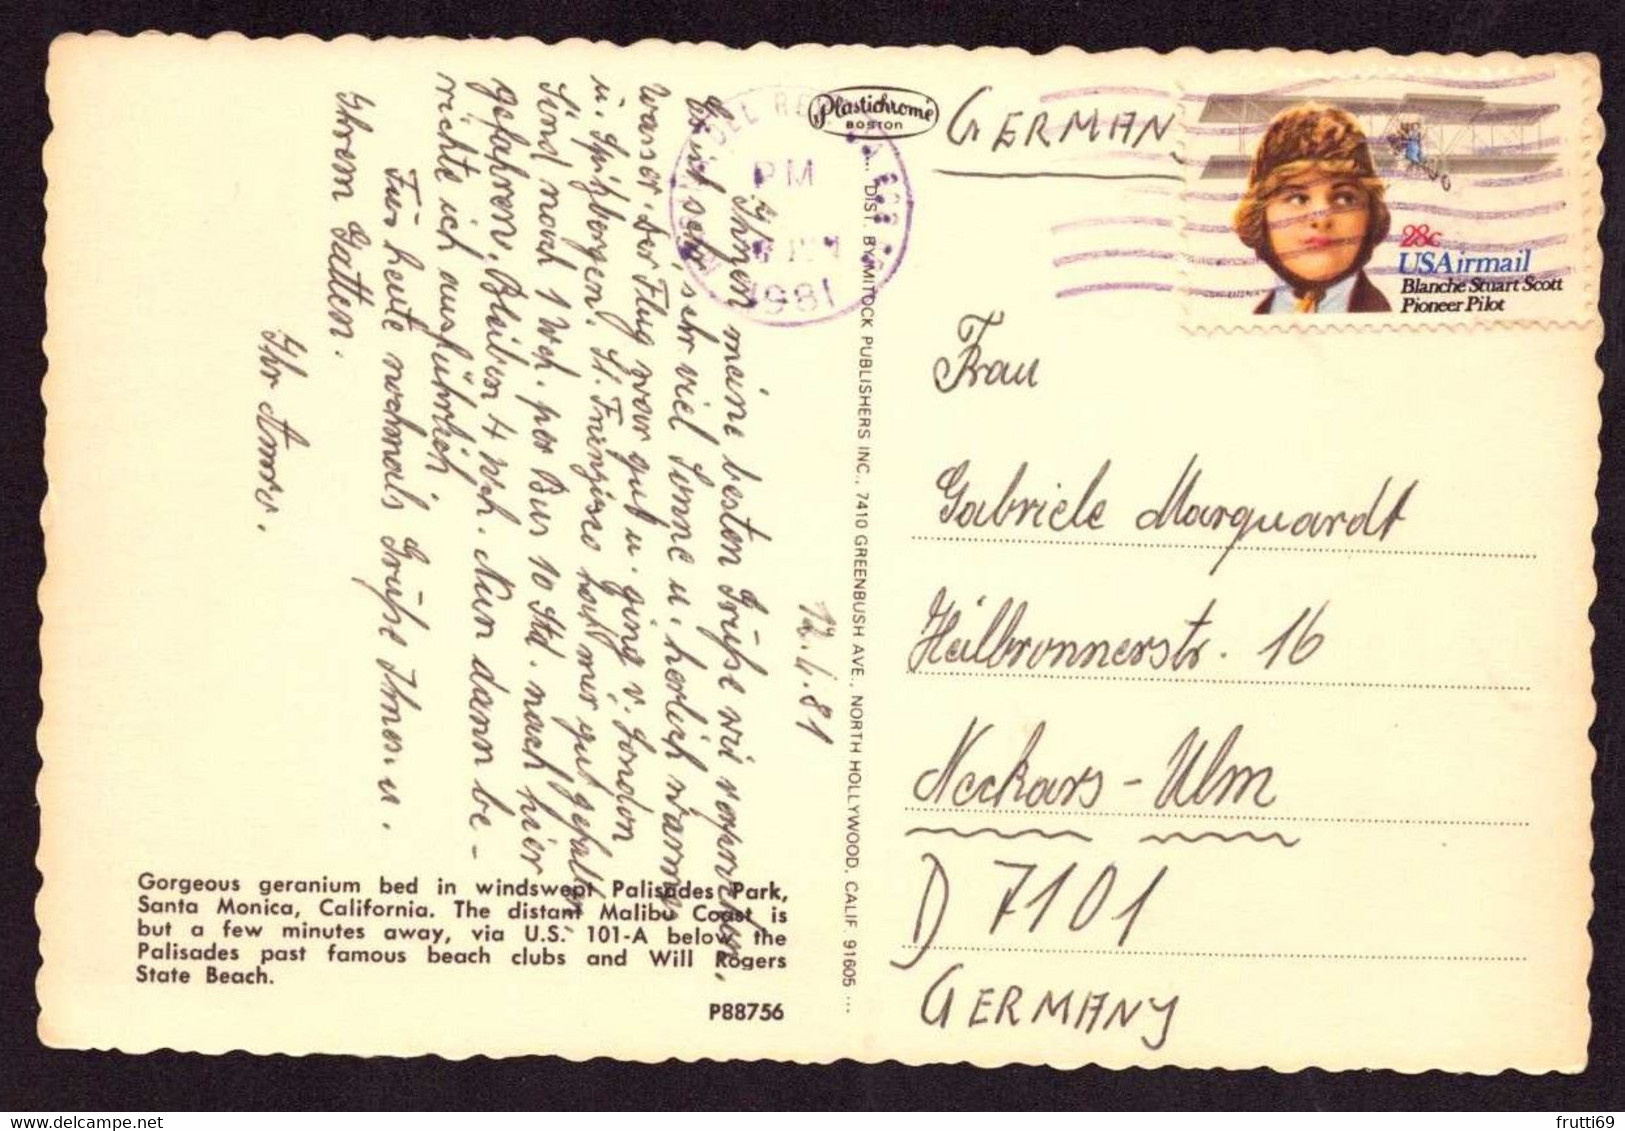 Plastichrome
BOSTON
GERMANY
PM
JUN
1981
28c
USAirmail
Blanche Stuart Scott
Pioneer Pilot
12.4.81
Ihnen meine besten Grüße wie versprochen.
Es ist sehr, sehr viel Sonne u. herlich warme
Wasser. Der Flug war gut u. ging v. London
ü. Spitzbergen. St. Franzisco hat mir gut gefallen
Sind noch 1 Wch. per Bus 10 Std. nach hier
gefahren. Bleiben 4 Wch. Nun dann be-
richte ich ausführlich
Für heute nochmals Grüße Ihnen u.
Ihrem Gatten.
Ihr
DIST. BY MITOCK PUBLISHERS INC., 7410 GREENBUSH AVE., NORTH HOLLYWOOD, CALIF. 91605 ...
Frau
Gabriele Marquardt
Heilbronnerstr. 16
Neckars-Ulm
D 7101
GERMANY
Gorgeous geranium bed in windswept Palisades Park,
Santa Monica, California. The distant Malibu Coast is
but a few minutes away, via U.S. 101-A below the
Palisades past famous beach clubs and Will Rogers
State Beach.
P88756
frutti69